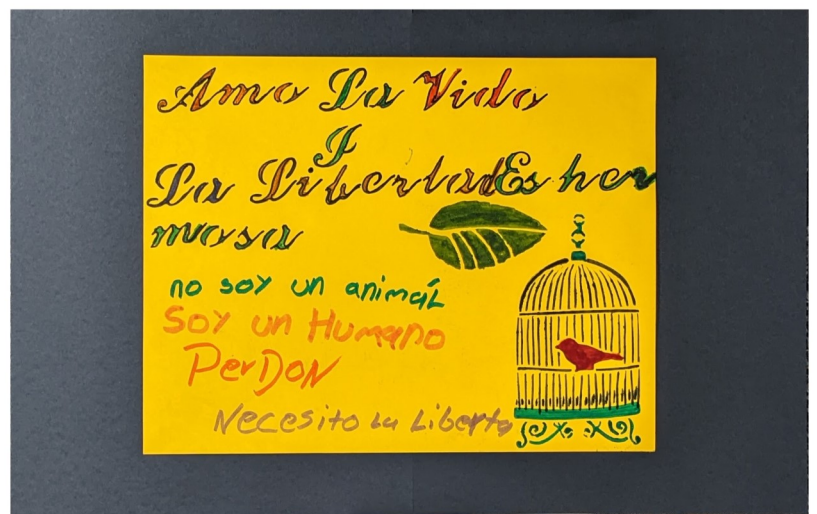 Amo La Vida
I
La Libertad Es her
mosa
no soy un animal
Soy un Humano
PerDON
Necesito La Liberta